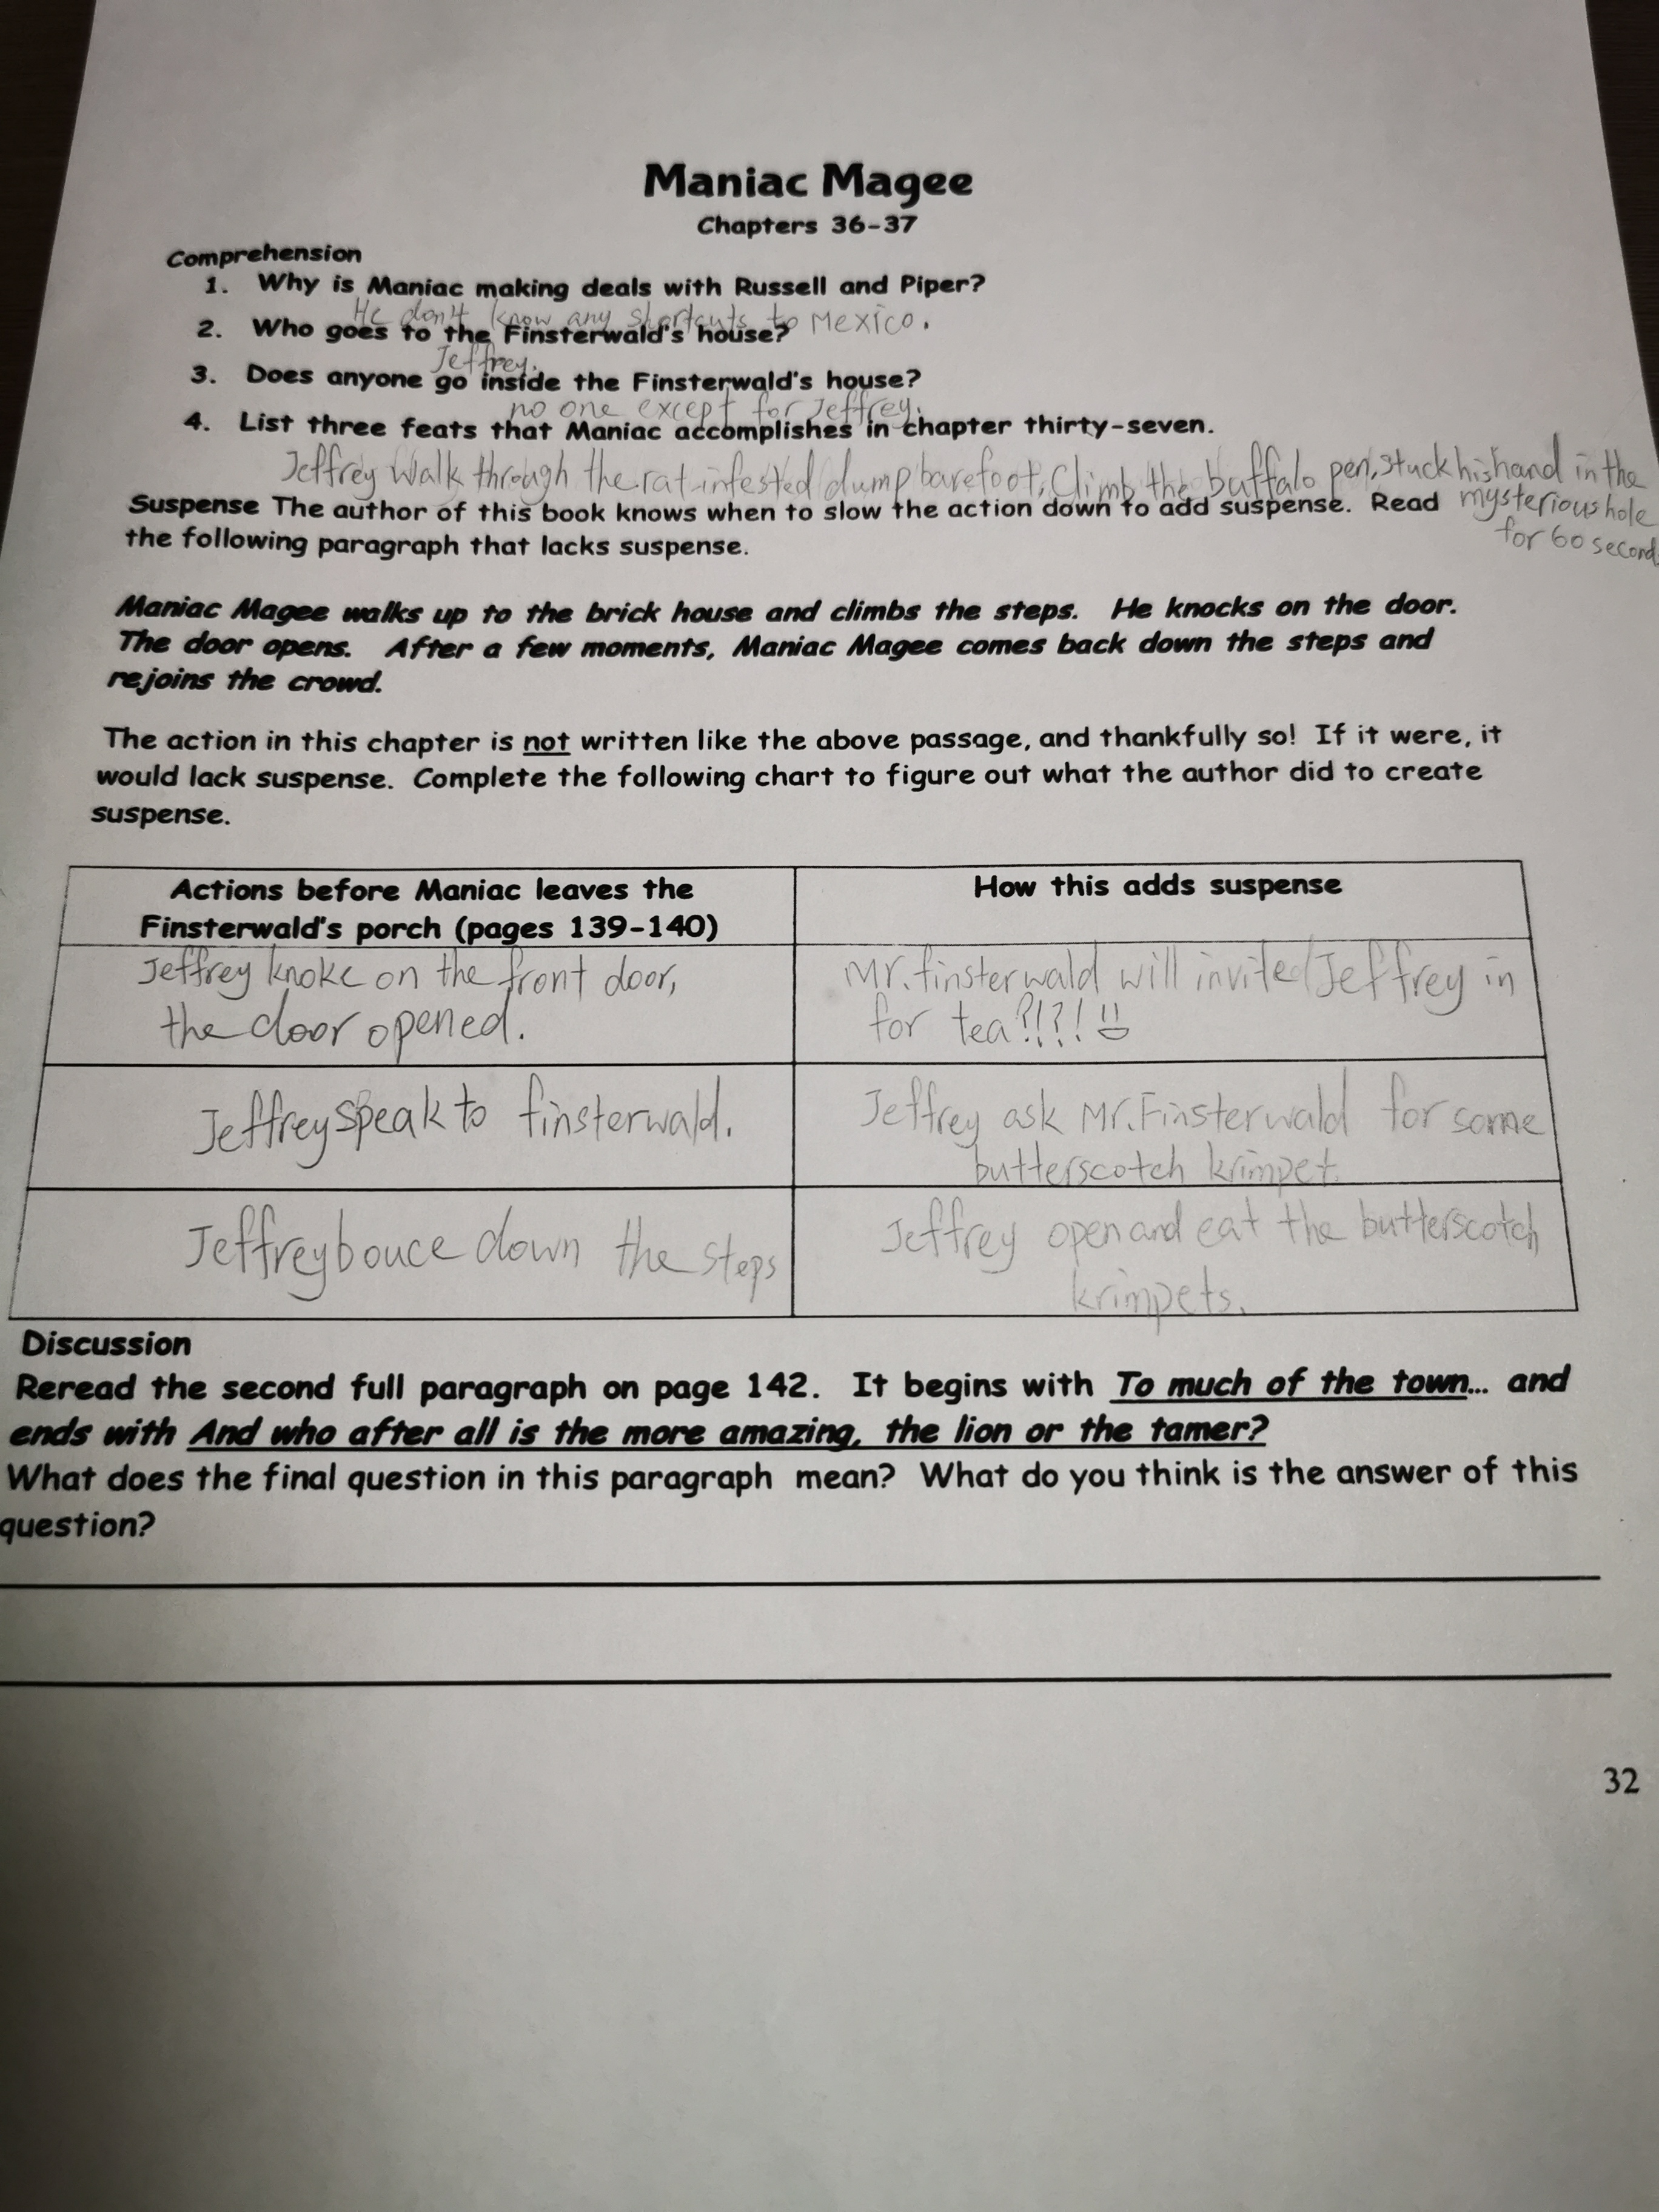 Maniac Magee
Chapters 36-37
Comprehension
1. Why is Maniac making deals with Russell and Piper?
He don't know any shortcuts to Mexico.
2. Who goes to the Finsterwald's house?
Jeffrey.
3. Does anyone go inside the Finsterwald's house?
no one except for Jeffrey.
4. List three feats that Maniac accomplishes in chapter thirty-seven.
Jeffrey walk through the rat-infested dump barefoot, Climb the buffalo pen, stuck his hand in the
mysterious hole
for 60 second.
Suspense The author of this book knows when to slow the action down to add suspense. Read
the following paragraph that lacks suspense.
Maniac Magee walks up to the brick house and climbs the steps. He knocks on the door.
The door opens. After a few moments, Maniac Magee comes back down the steps and
rejoins the crowd.
The action in this chapter is not written like the above passage, and thankfully so! If it were, it
would lack suspense. Complete the following chart to figure out what the author did to create
suspense.
Actions before Maniac leaves the
Finsterwald's porch (pages 139-140)
How this adds suspense
Jeffrey knoke on the front door,
the door opened.
Mr. finsterwald will invited Jeffrey in
for tea?!?!
Jeffrey speak to finsterwald.
Jeffrey ask Mr. Finsterwald for some
butterscotch krimpet.
Jeffrey bouce down the steps
Jeffrey open and eat the butterscotch
krimpets.
Discussion
Reread the second full paragraph on page 142. It begins with To much of the town... and
ends with And who after all is the more amazing, the lion or the tamer?
What does the final question in this paragraph mean? What do you think is the answer of this
question?
32